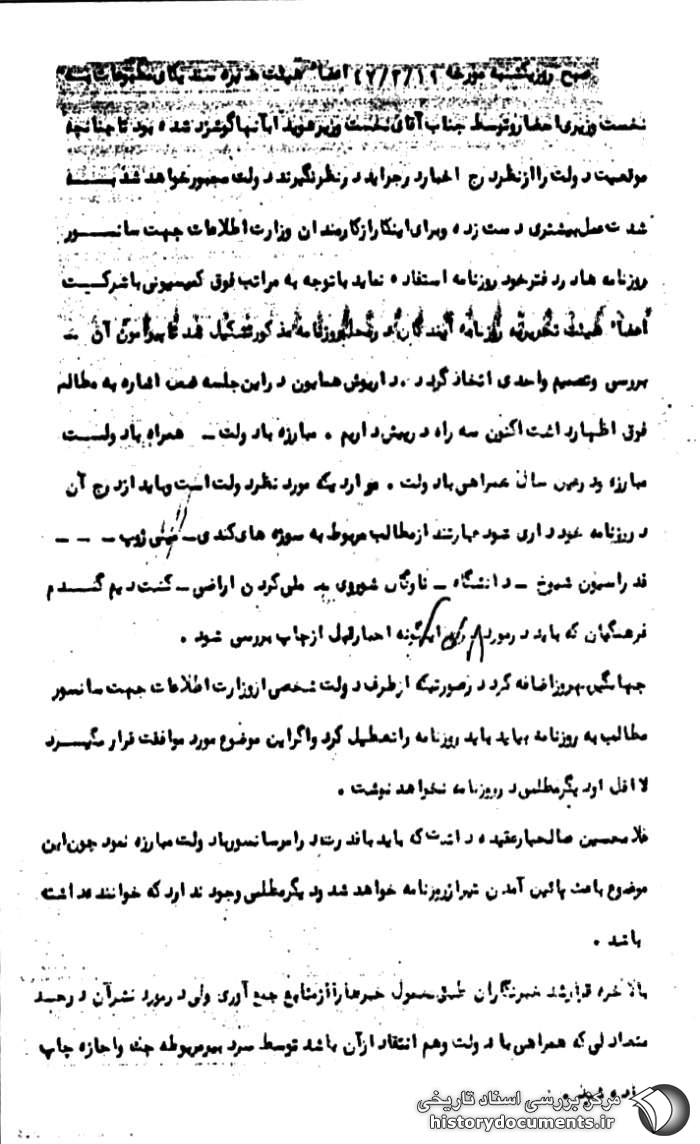 صبح روز یکشنبه مورخه ۴۷/۲/۱۲ اعضاء هیئت مدیره سندیکای مطبوعات به
نخست وزیری احضار و توسط جناب آقای نخست وزیر هویدا بآنها گوشزد شده بود تا چنانچه
موقعیت دولت را از نظر درج اخبار در جراید در نظر نگیرند دولت مجبور خواهد شد بــه
شدت عمل بیشتری دست زده و برای اینکار از کارمندان وزارت اطلاعات جهت سانســور
روزنامه ها در دفتر خود روزنامه استفاده نماید با توجه به مراتب فوق کمیسیونی با شرکــت
اعضاء هیئت تحریریه روزنامه آیندگان در محل روزنامه مذکور تشکیل شد تا پیرامون آن –
بررسی و تصمیم واحدی اتخاذ گردد . داریوش همایون در این جلسه ضمن اشاره به مطالب
فوق اظهار داشت اکنون سه راه در پیش داریم . مبارزه با دولت – همراه با دولــت
مبارزه و در عین حال همراهی با دولت . مواردیکه مورد نظر دولت است و باید از درج آن
در روزنامه خودداری شود عبارتند از مطالب مربوط به سوژه های کندی – مینی ژوپ – – –
فدراسیون شیوخ – دانشگاه – ناوگان شوروی – ملی کردن اراضی – کشت دیم گنــدم
فرهنگیان که باید در مورد اینگونه اخبار قبل از چاپ بررسی شود .
جهانگیر بهروز اضافه کرد در صورتیکه از طرف دولت شخصی از وزارت اطلاعات جهت سانسور
مطالب به روزنامه بیاید باید روزنامه را تعطیل کرد و اگر این موضوع مورد موافقت قرار نگیــرد
لااقل او دیگر مطلبی در روزنامه نخواهد نوشت .
غلامحسین صالحیار عقیده داشت که باید با قدرت در امر سانسور با دولت مبارزه نمود چون این
موضوع باعث پائین آمدن تیراژ روزنامه خواهد شد و دیگر مطلبی وجود ندارد که خواننده داشته
باشد .
بالاخره قرار شد خبرنگاران طبق معمول خبرها را از منابع جمع آوری ولی در مورد نشر آن در حــد
متعادلی که همراهی با دولت و هم انتقاد از آن باشد توسط سردبیر مربوطه چک و اجازه چاپ
داده شود .
مرکز بررسی اسناد تاریخی
historydocuments.ir